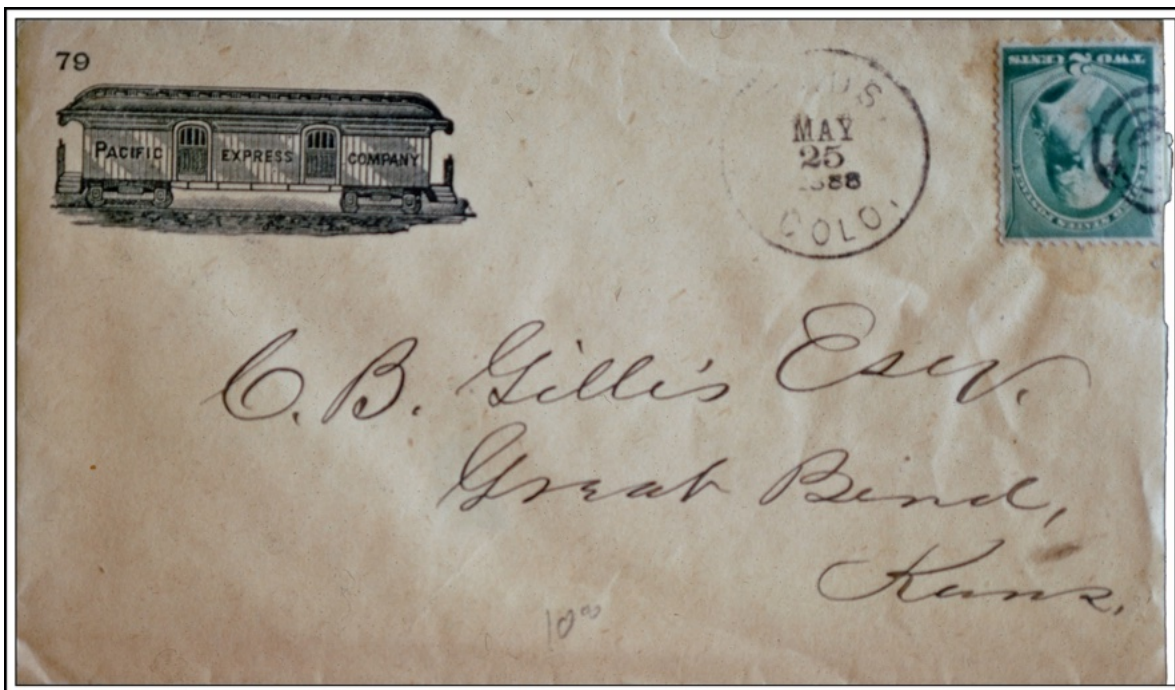 79
PACIFIC EXPRESS COMPANY
MAY
25
1888
COLO.
TWO 2 CENTS
C. B. Gillis Esqr.
Great Bend,
Kans.
10⁰⁰